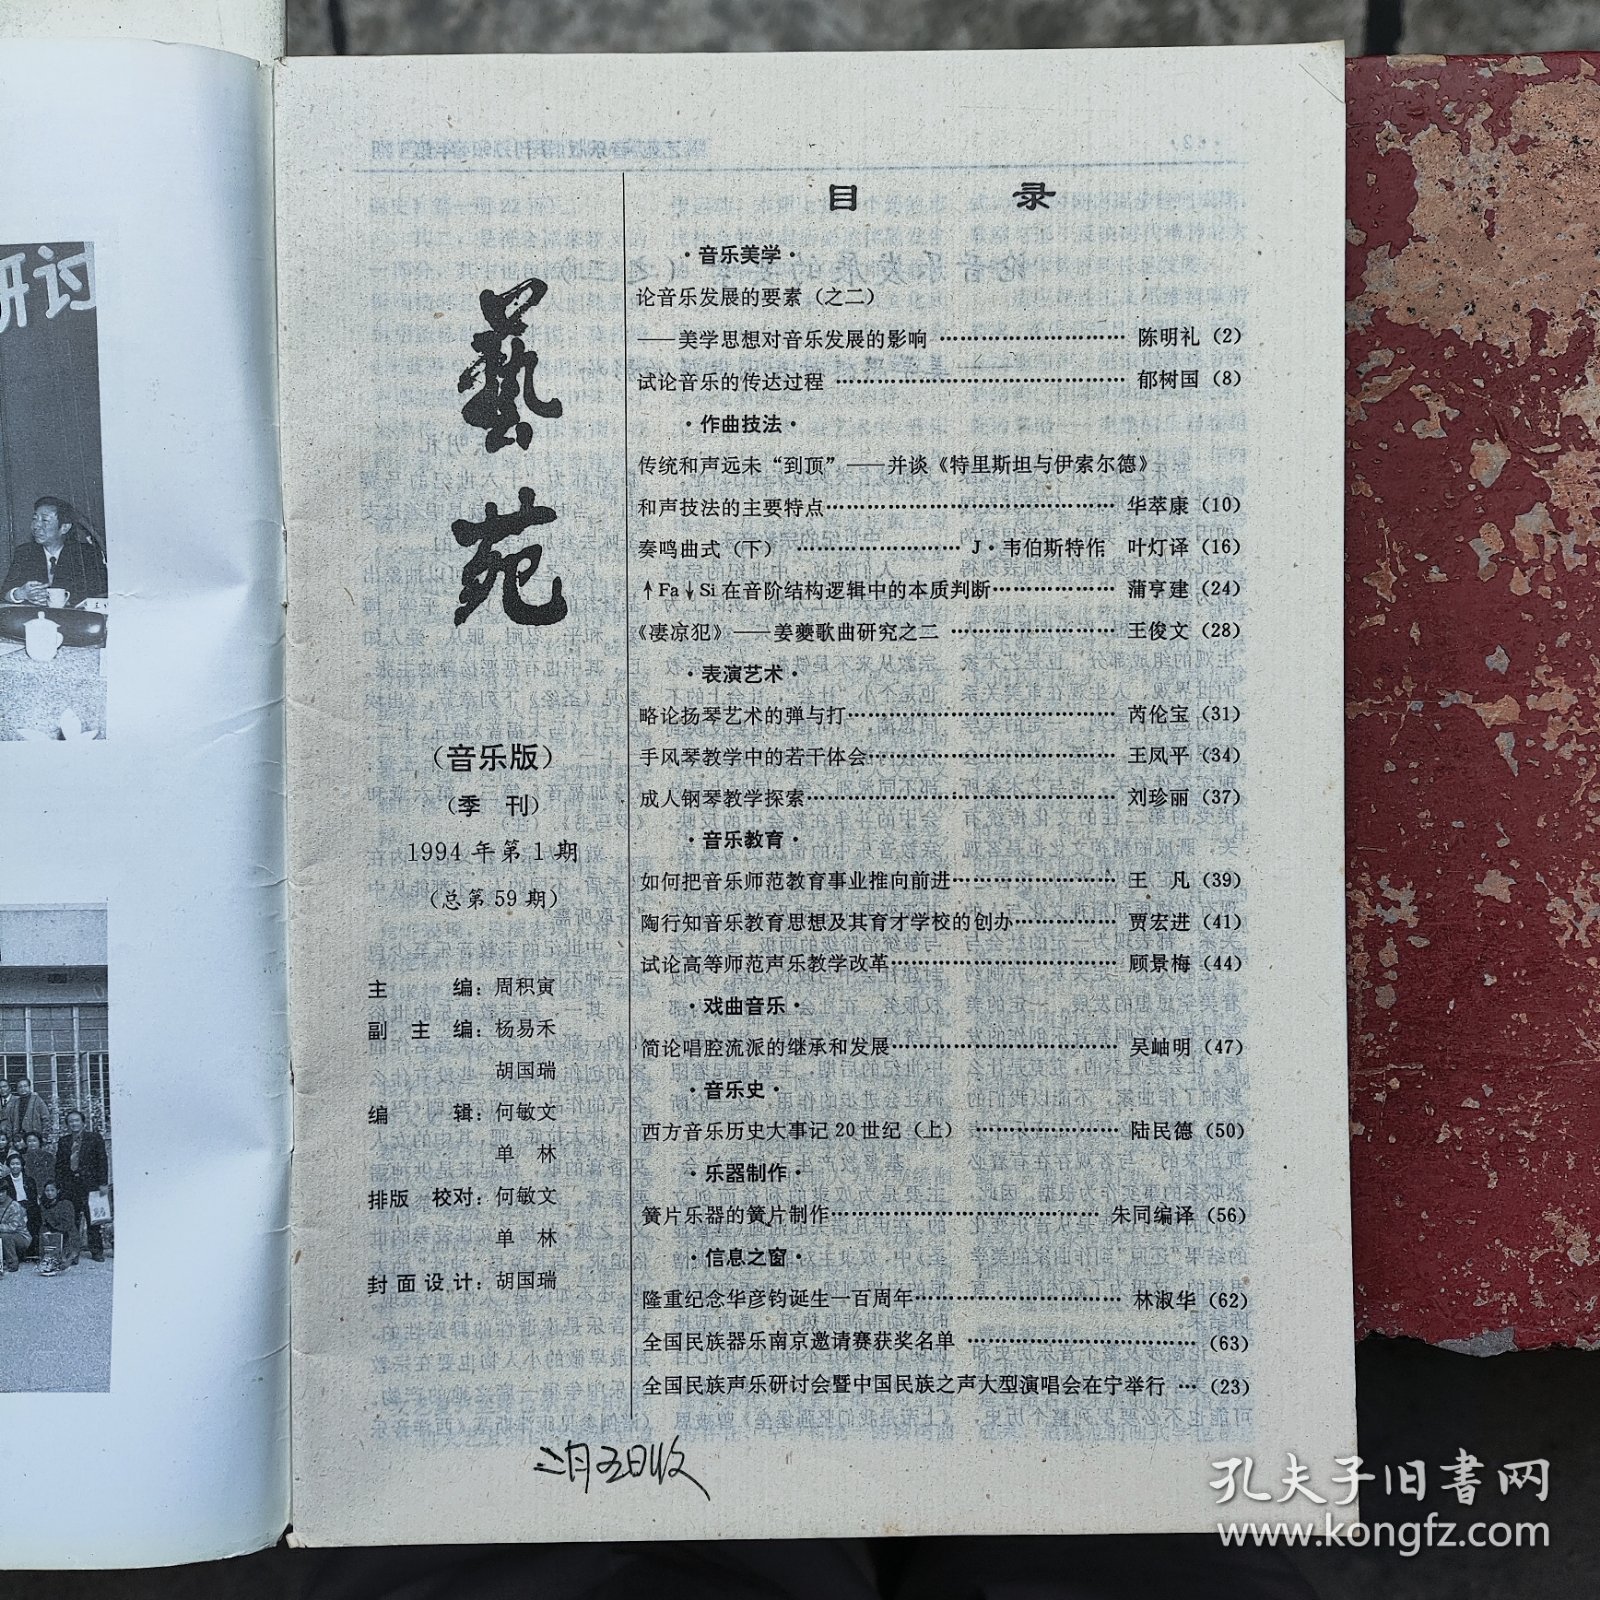 研讨
藝苑
（音乐版）
（季 刊）
1994 年第 1 期
（总第 59 期）
主 编：周积寅
副 主 编：杨易禾
胡国瑞
编 辑：何敏文
单 林
排版 校对：何敏文
单 林
封 面 设 计：胡国瑞
目 录
·音乐美学·
论音乐发展的要素（之二）
——美学思想对音乐发展的影响 …………………………陈明礼（2）
试论音乐的传达过程 ……………………………………郁树国（8）
·作曲技法·
传统和声远未“到顶”——并谈《特里斯坦与伊索尔德》
和声技法的主要特点……………………………………华萃康（10）
奏鸣曲式（下） ……………………J·韦伯斯特作 叶灯译（16）
↑Fa↓Si 在音阶结构逻辑中的本质判断………………蒲亨建（24）
《凄凉犯》——姜夔歌曲研究之二 ……………………王俊文（28）
·表演艺术·
略论扬琴艺术的弹与打…………………………………芮伦宝（31）
手风琴教学中的若干体会………………………………王凤平（34）
成人钢琴教学探索………………………………………刘珍丽（37）
·音乐教育·
如何把音乐师范教育事业推向前进……………………王 凡（39）
陶行知音乐教育思想及其育才学校的创办……………贾宏进（41）
试论高等师范声乐教学改革……………………………顾景梅（44）
·戏曲音乐·
简论唱腔流派的继承和发展……………………………吴岫明（47）
·音乐史·
西方音乐历史大事记 20 世纪（上） …………………陆民德（50）
·乐器制作·
簧片乐器的簧片制作…………………………………朱同编译（56）
·信息之窗·
隆重纪念华彦钧诞生一百周年…………………………林淑华（62）
全国民族器乐南京邀请赛获奖名单 ……………………………（63）
全国民族声乐研讨会暨中国民族之声大型演唱会在宁举行 …（23）
二月五日收
孔夫子旧书网
www.kongfz.com